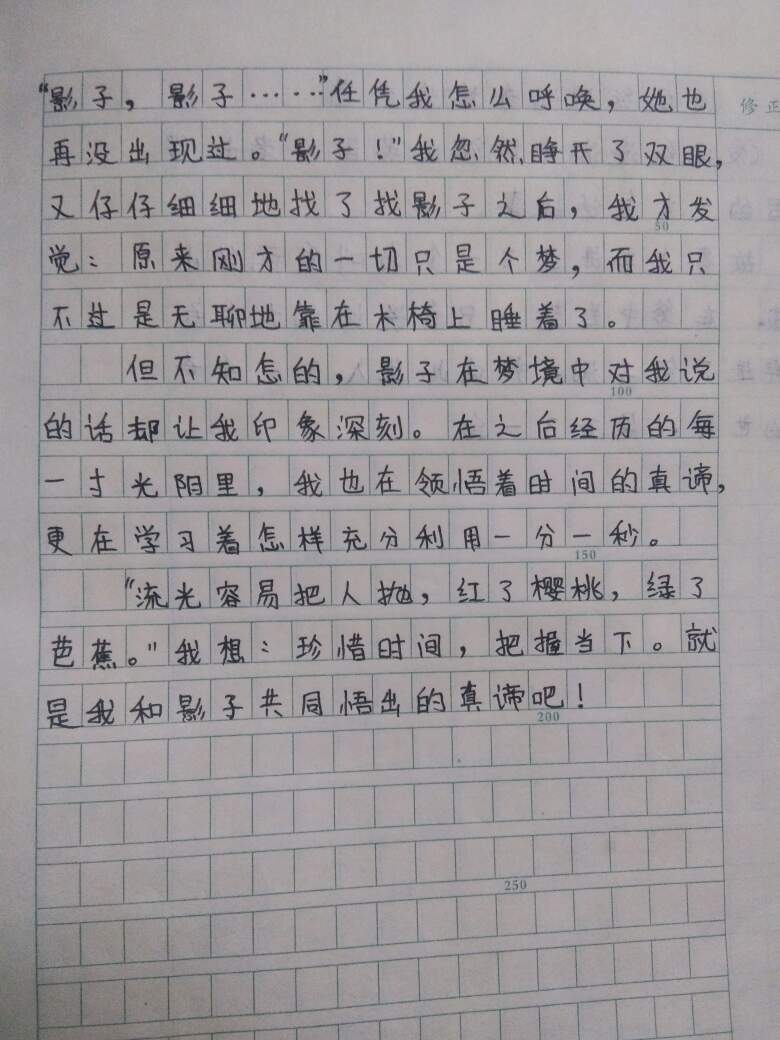 “影子，影子……”任凭我怎么呼唤，她也
修正
再没出现过。“影子！”我忽然睁开了双眼，
又仔仔细细地找了找影子之后，我才发
50
觉：原来刚才的一切只是个梦，而我只
不过是无聊地靠在木椅上睡着了。
但不知怎的，影子在梦境中对我说
100
的话却让我印象深刻。在之后经历的每
一寸光阳里，我也在领悟着时间的真谛，
更在学习着怎样充分利用一分一秒。
150
“流光容易把人抛，红了樱桃，绿了
芭蕉。”我想：珍惜时间，把握当下。就
是我和影子共同悟出的真谛吧！
200
250